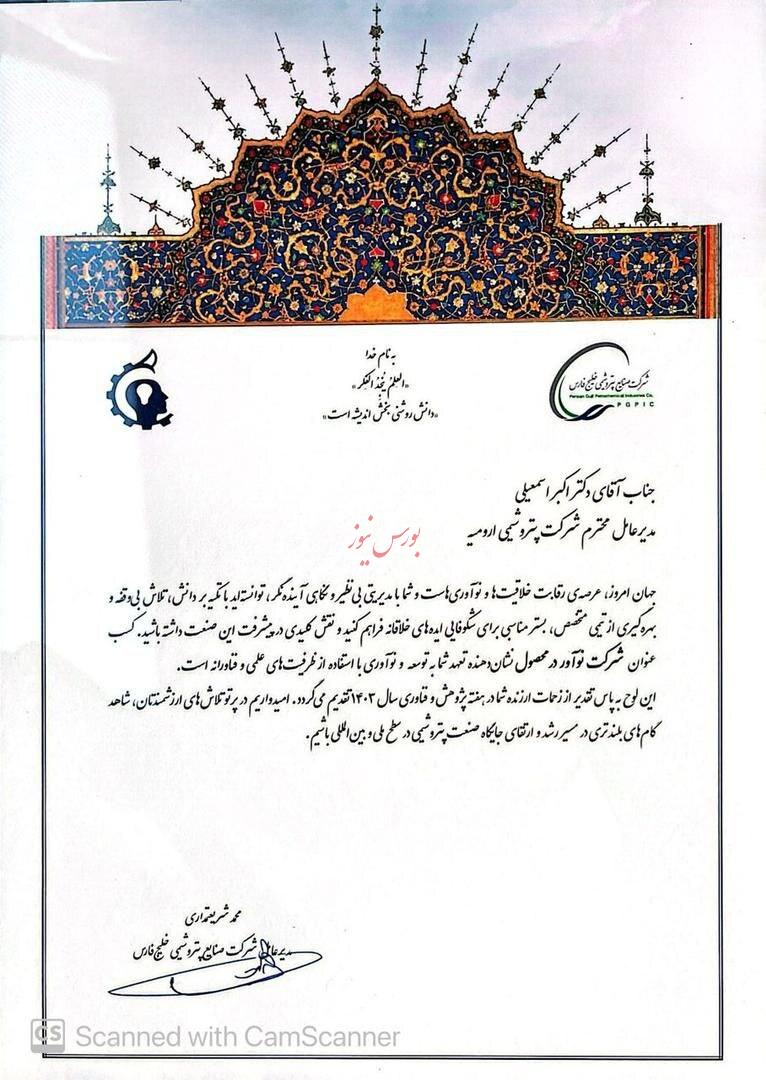 به نام خدا
«العلم یُنجِدُ الفکر»
«دانش روشنی بخش اندیشه است»
شرکت صنایع پتروشیمی خلیج فارس
Persian Gulf Petrochemical Industries Co.
PGPIC
جناب آقای دکتر اکبر اسمعیلی
مدیرعامل محترم شرکت پتروشیمی ارومیه
بورس نیوز
جهان امروز، عرصه‌ی رقابت خلاقیت‌ها و نوآوری‌هاست و شما با مدیریتی بی‌نظیر و نگاهی آینده‌نگر، توانسته‌اید با تکیه بر دانش، تلاش بی‌وقفه و
بهره‌گیری از تیمی متخصص، بستر مناسبی برای شکوفایی ایده‌های خلاقانه فراهم کنید و نقش کلیدی در پیشرفت این صنعت داشته باشید. کسب
عنوان شرکت نوآور در محصول نشان‌دهنده تعهد شما به توسعه و نوآوری با استفاده از ظرفیت‌های علمی و فناورانه است.
این لوح به پاس تقدیر از زحمات ارزنده شما در هفته پژوهش و فناوری سال ۱۴۰۳ تقدیم می‌گردد. امیدواریم در پرتو تلاش‌های ارزشمندتان، شاهد
گام‌های بلندتری در مسیر رشد و ارتقای جایگاه صنعت پتروشیمی در سطح ملی و بین‌المللی باشیم.
محمد شریعتمداری
مدیرعامل شرکت صنایع پتروشیمی خلیج فارس
CS Scanned with CamScanner